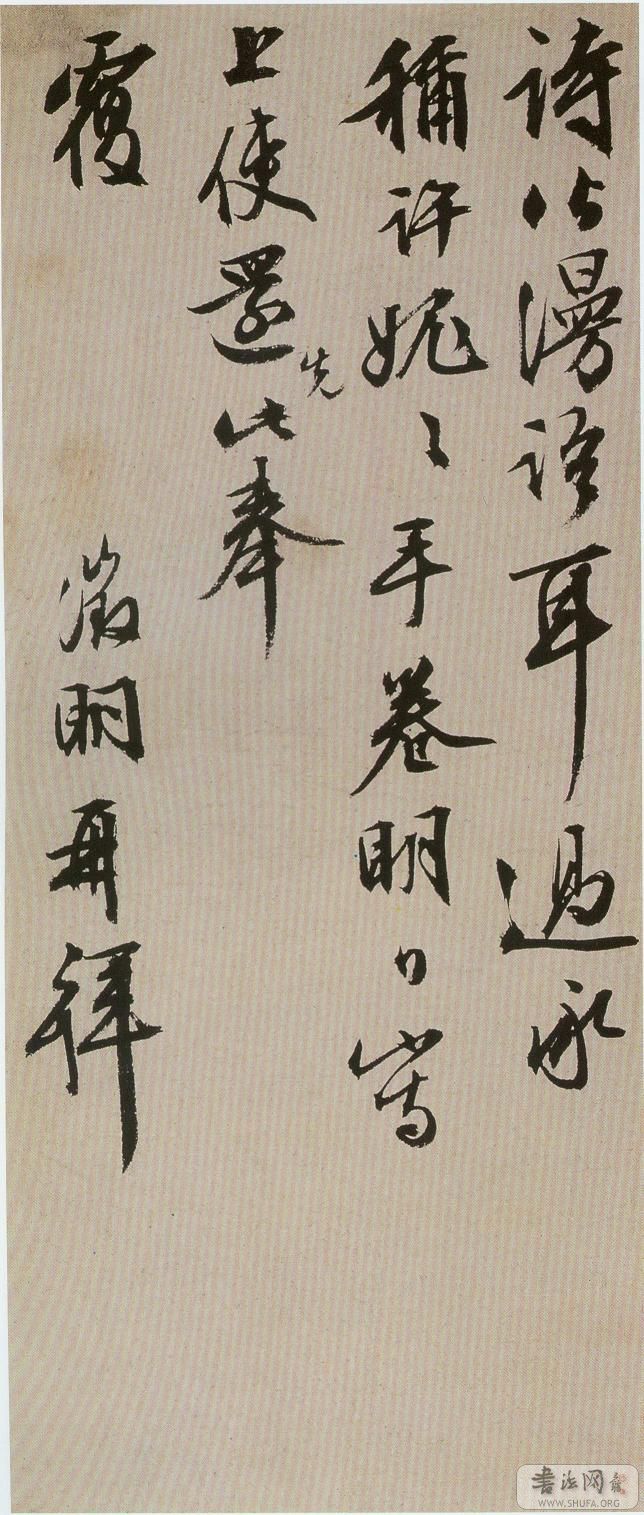 詩漫語耳過承
稱許媿〻手卷明日寫
上使還先此奉
覆 徵明再拜
書法网
WWW.SHUFA.ORG